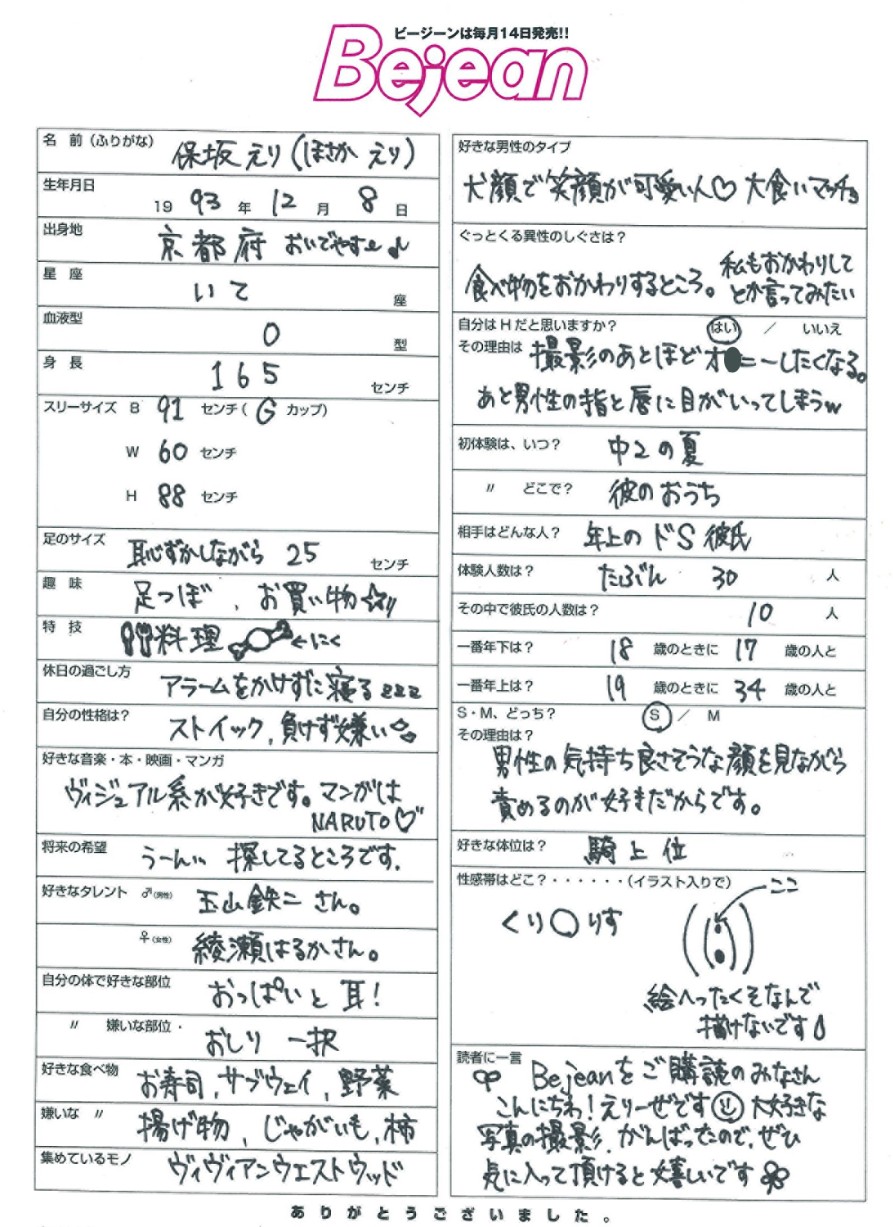 ビージーンは毎月14日発売!!
Bejean
名 前 (ふりがな) 保坂 えり (ほさか えり)
生年月日 19 93 年 12 月 8 日
出身地 京都府 おいでやす〜♪
星 座 いて 座
血液型 O 型
身 長 165 センチ
スリーサイズ B 91 センチ( G カップ)
W 60 センチ
H 88 センチ
足のサイズ 恥ずかしながら 25 センチ
趣 味 足つぼ、お買い物☆
特 技 料理 ←にく
休日の過ごし方 アラームをかけずに寝る zzz
自分の性格は? ストイック、負けず嫌い
好きな音楽・本・映画・マンガ
ヴィジュアル系が好きです。マンガは
NARUTO♡
将来の希望 うーん… 探してるところです.
好きなタレント ♂(男性) 玉山鉄二さん。
♀(女性) 綾瀬はるかさん。
自分の体で好きな部位 おっぱいと 耳!
〃 嫌いな部位・ おしり 一択
好きな食べ物 お寿司,サブウェイ,野菜
嫌いな 〃 揚げ物、じゃがいも,柿
集めているモノ ヴィヴィアンウエストウッド
好きな男性のタイプ
犬顔で笑顔が可愛い人♡ 大食いマッチョ
ぐっとくる異性のしぐさは?
食べ物をおかわりするところ。私もおかわりして
とか言ってみたい
自分はHだと思いますか? はい / いいえ
その理由は 撮影のあとほどオ●ニーしたくなる。
あと男性の指と唇に目がいってしまうw
初体験は、いつ? 中2の夏
〃 どこで? 彼のおうち
相手はどんな人? 年上の ドS 彼氏
体験人数は? たぶん 30 人
その中で彼氏の人数は? 10 人
一番年下は? 18 歳のときに 17 歳の人と
一番年上は? 19 歳のときに 34 歳の人と
S・M、どっち? S / M
その理由は? 男性の気持ち良さそうな顔を見ながら
責めるのが好きだからです。
好きな体位は? 騎上位
性感帯はどこ?・・・・・・(イラスト入りで) ここ
くり○りす
絵へったくそなんで
描けないです
読者に一言
Bejeanをご購読のみなさん
こんにちわ!えりーぜです 大好きな
写真の撮影、がんばったので、ぜひ
気に入って頂けると嬉しいです
ありがとうございました。